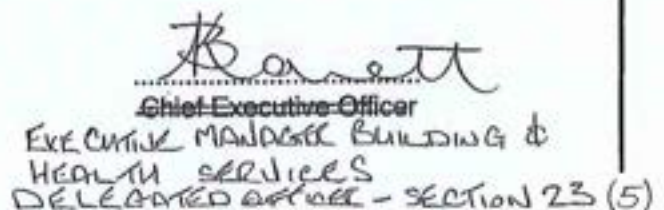 Chief Executive Officer
EXECUTIVE MANAGER BUILDING &
HEALTH SERVICES
DELEGATED OFFICER - SECTION 23 (5)